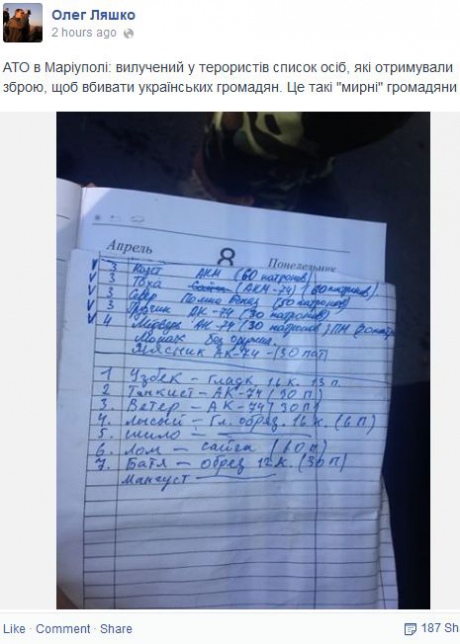 Олег Ляшко
2 hours ago
АТО в Маріуполі: вилучений у терористів список осіб, які отримували
зброю, щоб вбивати українських громадян. Це такі "мирні" громадяни
Апрель 8 Понедельник
3 АКМ (60 патронов)
3 Тоха (АКМ-74) (60 патронов)
3 Север (50 патронов)
3 АК-74 (30 патронов)
4 АК 74 (30 патронов) ПМ
без оружия.
Мясник АК-74-(30 пат)
1 Узбек - Гладк. 16 к. 13 п.
2 Танкист-АК-74 (30 п.)
3. Ветер-АК-74 (30 п.)
4. Лысый - Гл. обрез. 16 к. (6 п.)
5. шило -
6. Лом - сайга (10 п)
7. Батя - обрез 12 к. (30 п)
Мангуст
Like · Comment · Share
187 Sh